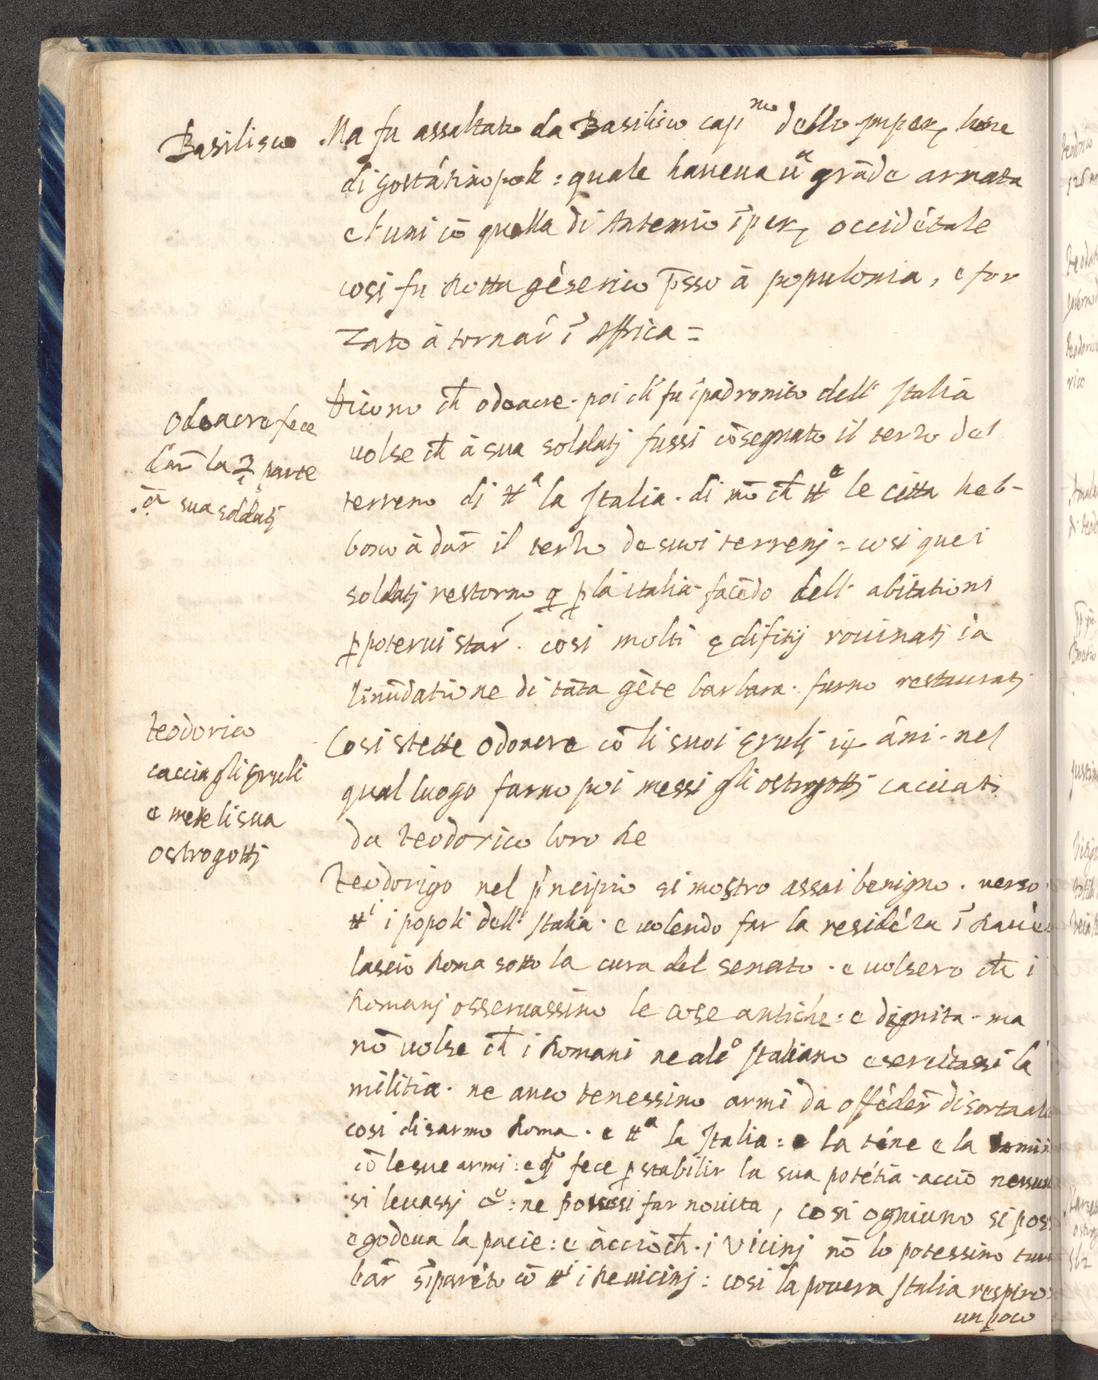 Basilisco
Ma fu assaltato da Basilisco capi.no dello imper, leone
di gostātinopoli : quale haueua ūa grāde armata
et uni cō quella di Antemio īper, occidētale
cosi fu Rotta gēserico p̄sso à populonia, e for
zato à tornar̄ ī Affrica =
Odoacre fece
dar̄ la 3 parte
sua soldatj
Dicono ch̄ odoacre. poi ch̄ fu īpadronito dell' Italia
uolse ch̄ à sua soldatj fussi cōsegnato il terzo del
terreno di tt.a la Italia. di mō ch̄ tt.e le citta heb-
bono à dar̄ il terzo de suoi terrenj = cosi quei
soldatj restorno q. ꝑ la italia facēdo dell' abitationi
ꝑ poterui star̄. cosi molti ędifitij rouinatj
linūdatione di tāta gēte barbara. furno restauratj
teodorico
caccia gli Eruli
e mette li sua
ostrogottj
Cosi stette odoacre cō li suoi Erulj āni. nel
qual luogo furno poi messi gli ostrogottj cacciati
da teodorico loro Re
teodorigo nel p̄ncipio si mostro assai benigno. uerso
tt.i i popoli dell' Italia. e uolendo far la residēza ī
lascio Roma sotto la cura del senato. e uolsero ch̄ i
Romanj osseruassino le cose antiche: e dignita. ma
nō uolse ch̄ i Romani ne alc.o Italiano esercitassi la
militia. ne anco tenessino armi da offēder̄ di sorta
cosi disarmo Roma. e tt.a la Italia: e la tēne e la
cō le sue armi: e fece ꝑ stabilir la sua potētia. acciō
si leuassj: ne potessi far nouita, cosi ogniuno si
e godeua la pacie: e àcciō ch̄. i vicinj nō lo potessino
bar̄ s'īparēto cō tt.i i Re uicinj: cosi la pouera Italia respiro
un poco